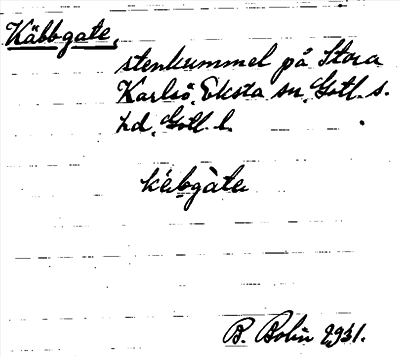 Käbbgate,
stenkummel på Stora
Karlsö, Eksta sn, Gotl. s.
hd, Gotl. l.
kèbgàte
B. Bolin 1931.